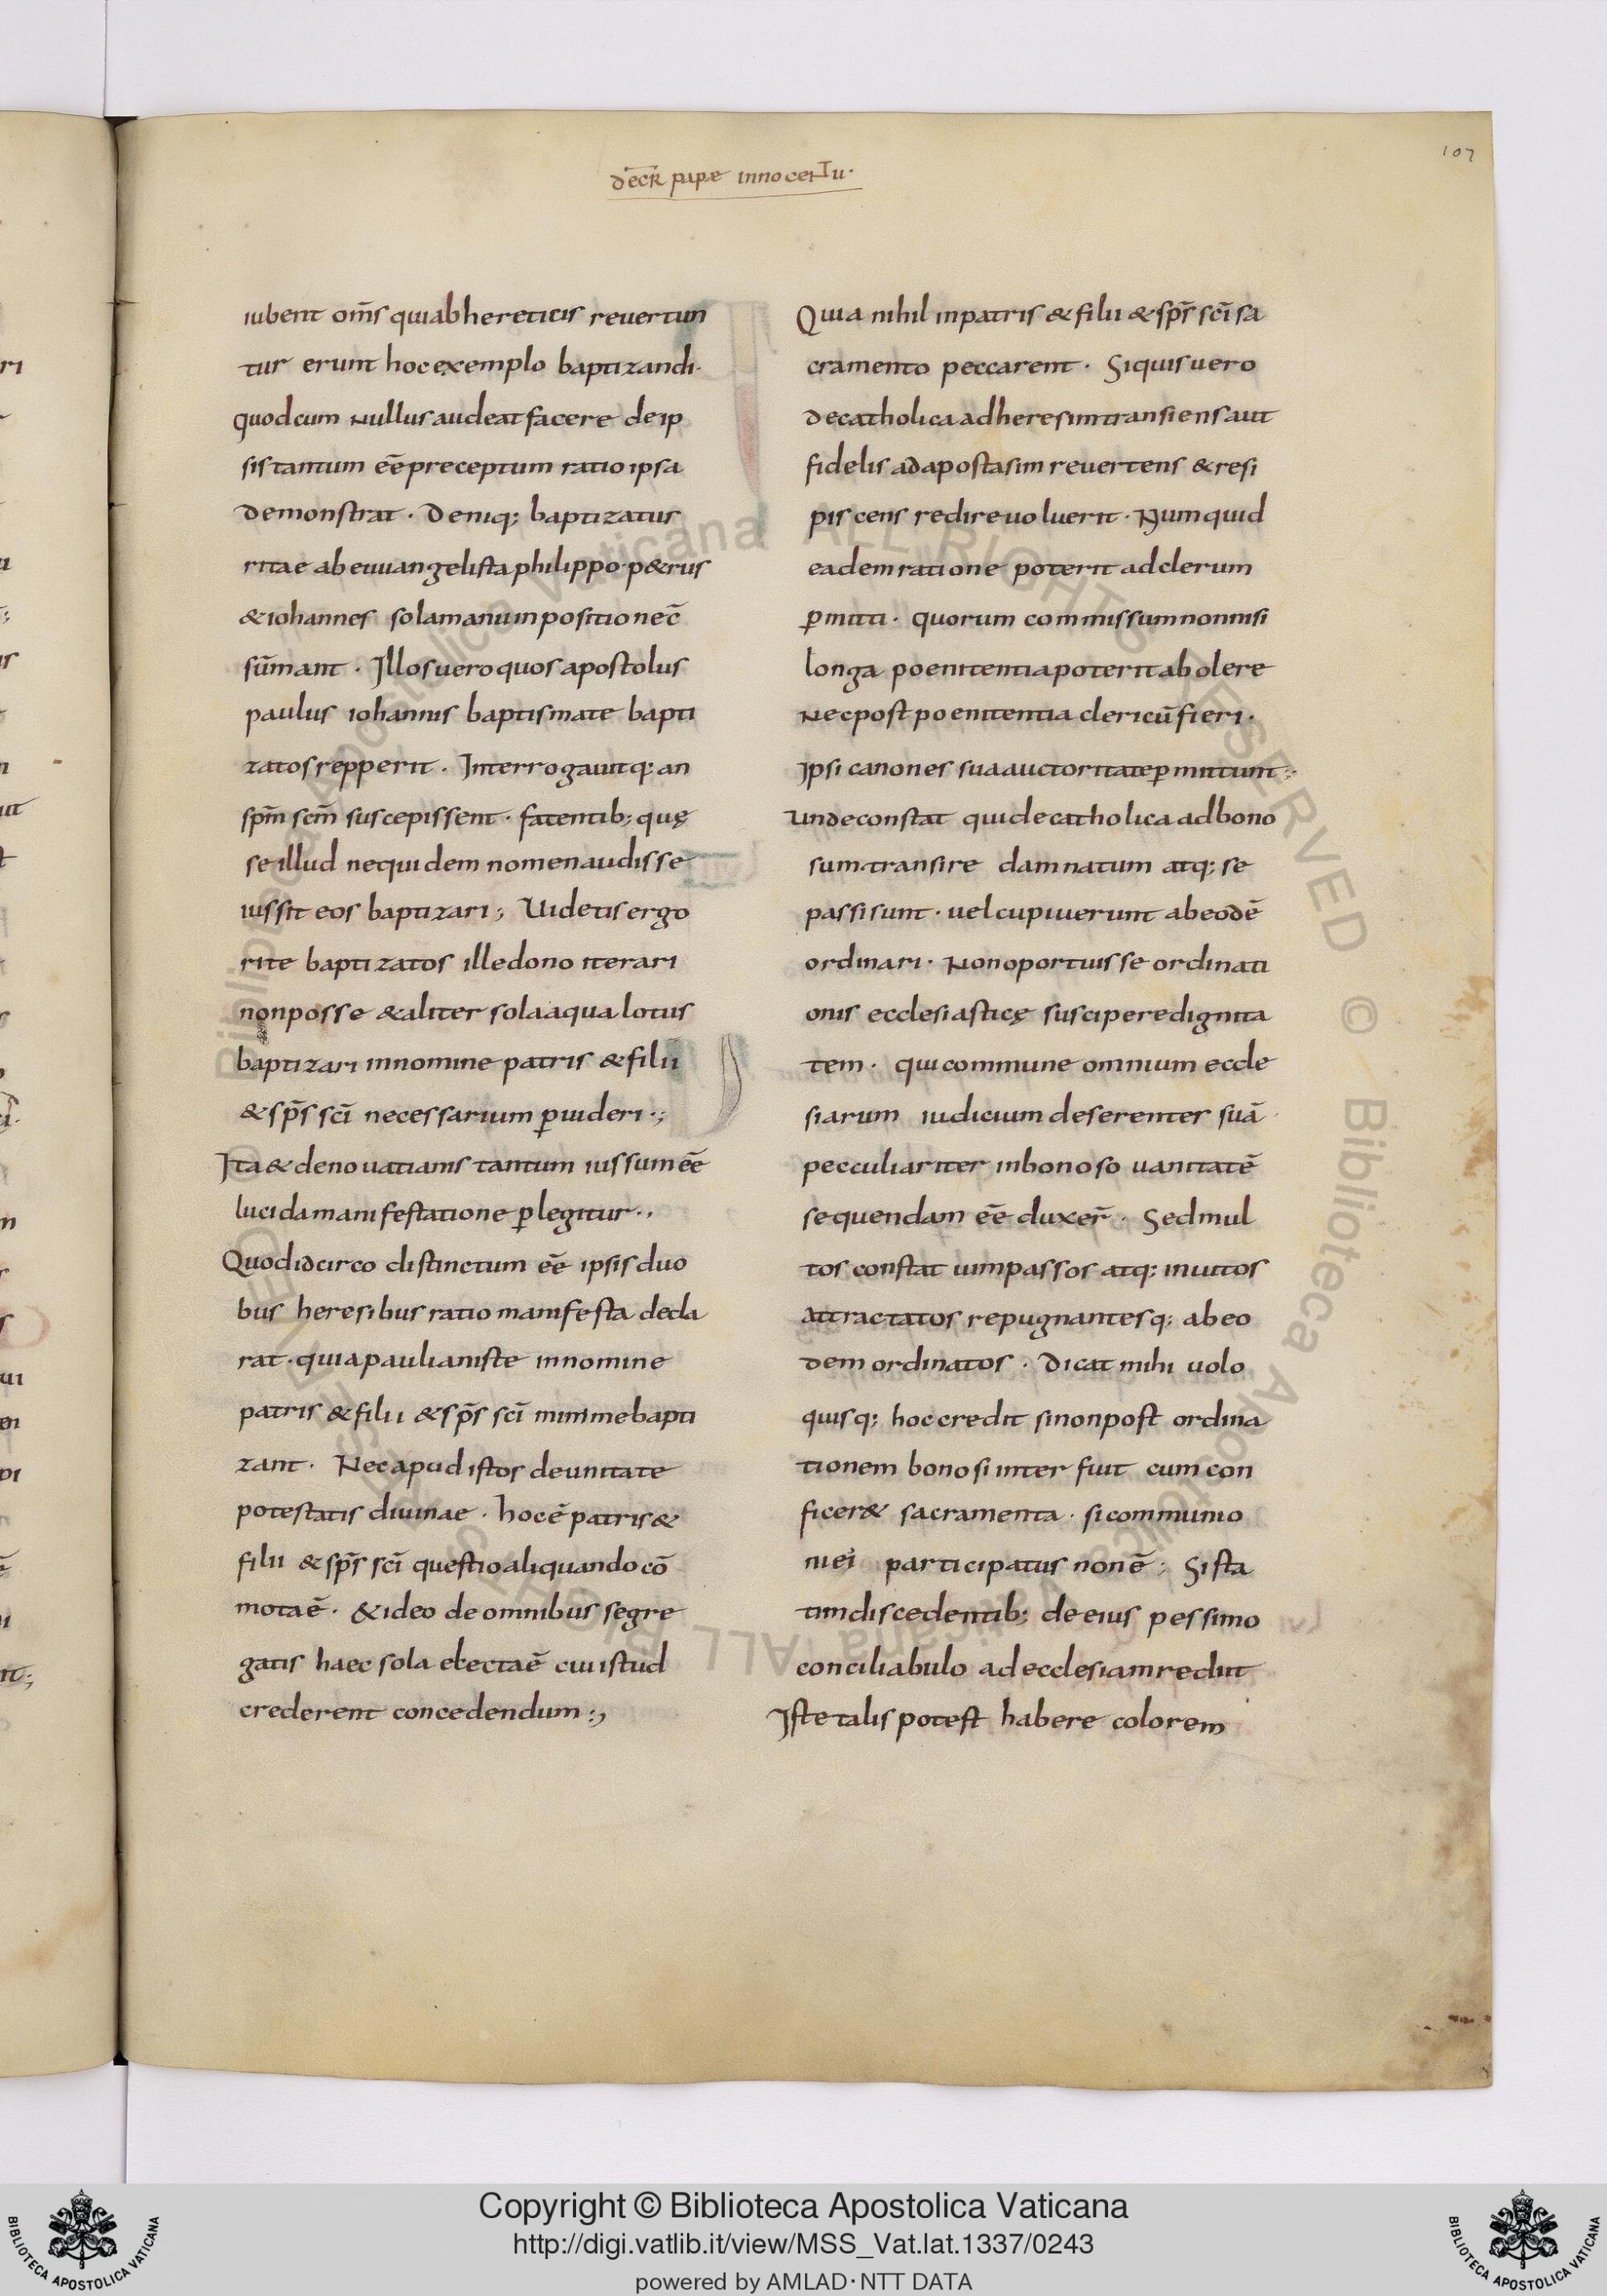 107
decr̄ pape innocentii·
iubent om̄s qui ab hereticis reuertun
tur erunt hoc exemplo baptizandi·
quod cum nullus audeat facere de ip
sis tantum eē preceptum ratio ipsa
demonstrat · Deniq; baptizatus
ritae ab euuangelista philippo· p&rus
& iohannes sola manu inpositione c̄
sūmant · Illos uero quos apostolus
paulus iohannis baptismate bapti
zatos repperit · Interrogauitq; an
sp̄m sc̄m suscepissent · fatentib; quę
se illud nequidem nomen audisse
iussit eos baptizari ; Uidetis ergo
rite baptizatos ille dono iterari
non posse & aliter sola aqua lotus
baptizari in nomine patris & filii
& sp̄s sc̄i necessarium p̱uideri ·;
Ita & de nouatianis tantum iussum eē
lucida manifestatione p̱legitur ·,
Quod idcirco distinctum eē ipsis duo
bus heresibus ratio manifesta decla
rat · quia paulianiste in nomine
patris & filii & sp̄s sc̄i minime bapti
zant · Nec apud istos de unitate
potestatis diuinae · hoc ē patris &
filii & sp̄s sc̄i questio aliquando cō
mota ē · & ideo de omnibus segre
gatis haec sola electa ē cui istud
crederent concedendum :,
Quia nihil in patris & filii & sp̄s sc̄i sa
cramento peccarent · Si quis uero
de catholica ad heresim transiens aut
fidelis ad apostasim reuertens & resi
piscens redire uoluerit · Numquid
eadem ratione poterit ad clerum
p̱mitti · quorum commissum non nisi
longa poenitentia poterit abolere
Nec post poenitentia clericū fieri ·
Ipsi canones sua auctoritate p̱mittunt ;·
Unde constat qui de catholica ad bono
sum transire damnatum atq; se
passi sunt · uel cupiuerunt ab eodē
ordinari · Non oportuisse ordinati
onis ecclesiasticę suscipere dignita
tem · qui commune omnium eccle
siarum iudicium deserenter suā
pecculiariter in bonoso uanitatē
sequendam eē duxer̄ · Sed mul
tos constat uim passos atq; inuitos
attractatos repugnantesq; ab eo
dem ordinatos · Dicat mihi uolo
quisq; hoc credit si non post ordina
tionem bonosi interfuit cum con
ficer& sacramenta · si communio
ni ei participatus non ē ; Si sta
tim discedentib; de eius pessimo
conciliabulo ad ecclesiam rediit
Iste talis potest habere colorem
Copyright © Biblioteca Apostolica Vaticana
http://digi.vatlib.it/view/MSS_Vat.lat.1337/0243
powered by AMLAD·NTT DATA
BIBLIOTECA APOSTOLICA VATICANA
BIBLIOTECA APOSTOLICA VATICANA